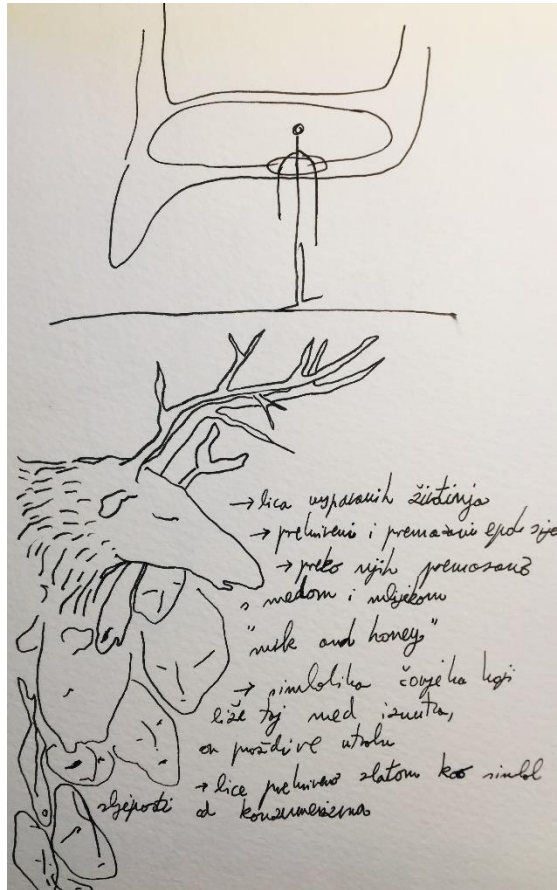 → lica
→ prekriveni i premazani
→ preko njih premazano
s medom i mlijekom
"milk and honey"
→ simbolika čovjeka koji
liže taj med iznutra,
on proždire utrobu
→ lice prekriveno zlatom kao simbol
sljeposti od konzumerizma